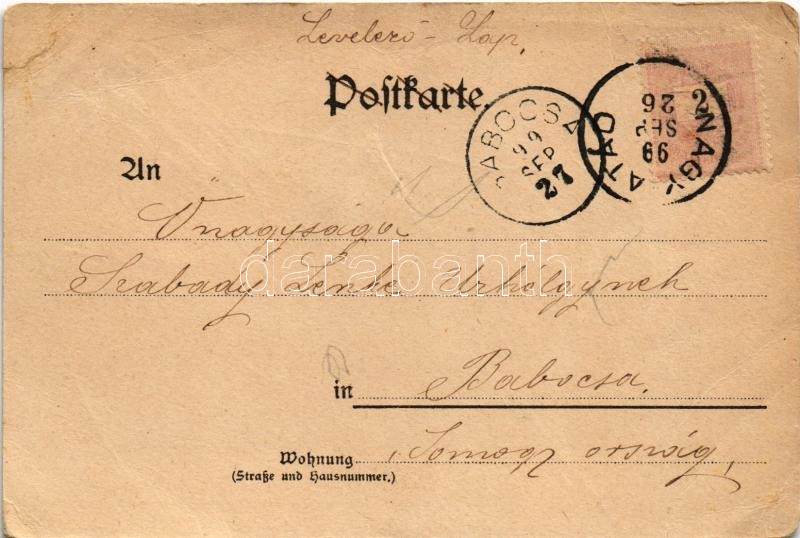 Levelező - Lap.
Postkarte.
BABOCSA
99
SEP
27
NAGY ATÁD
99
SEP
26
2
An
Őnagysága
Szabady Lenke Urhölgynek
in Babocsa.
Wohnung
(Straße und Hausnummer.)
Somogy ország,
darabanth